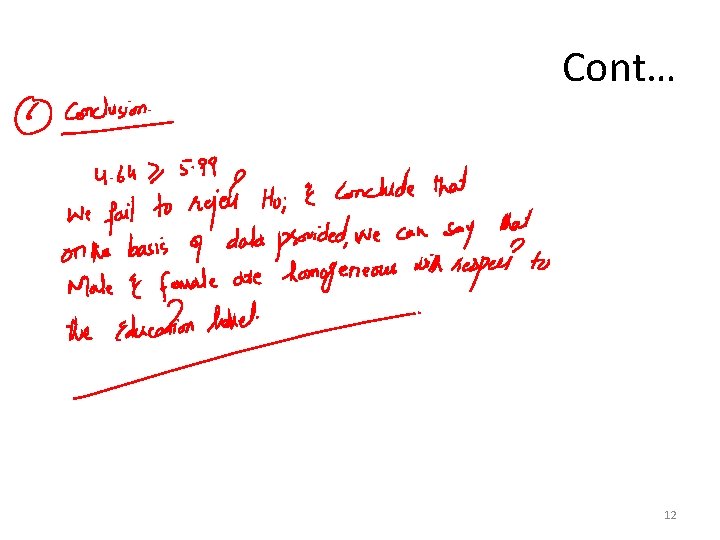 Cont...
6 Conclusion.
4.64 ≥ 5.99
We fail to reject H₀; & conclude that
on the basis of data provided, we can say that
Male & female are homogeneous with respect to
the Education level.
12